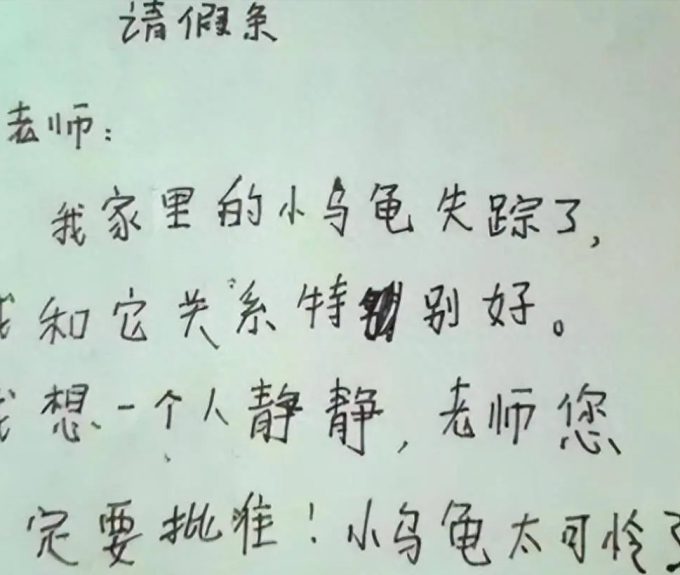 请假条
老师：
我家里的小乌龟失踪了，
我和它关系特别好。
我想一个人静静，老师您
定要批准！小乌龟太可怜了